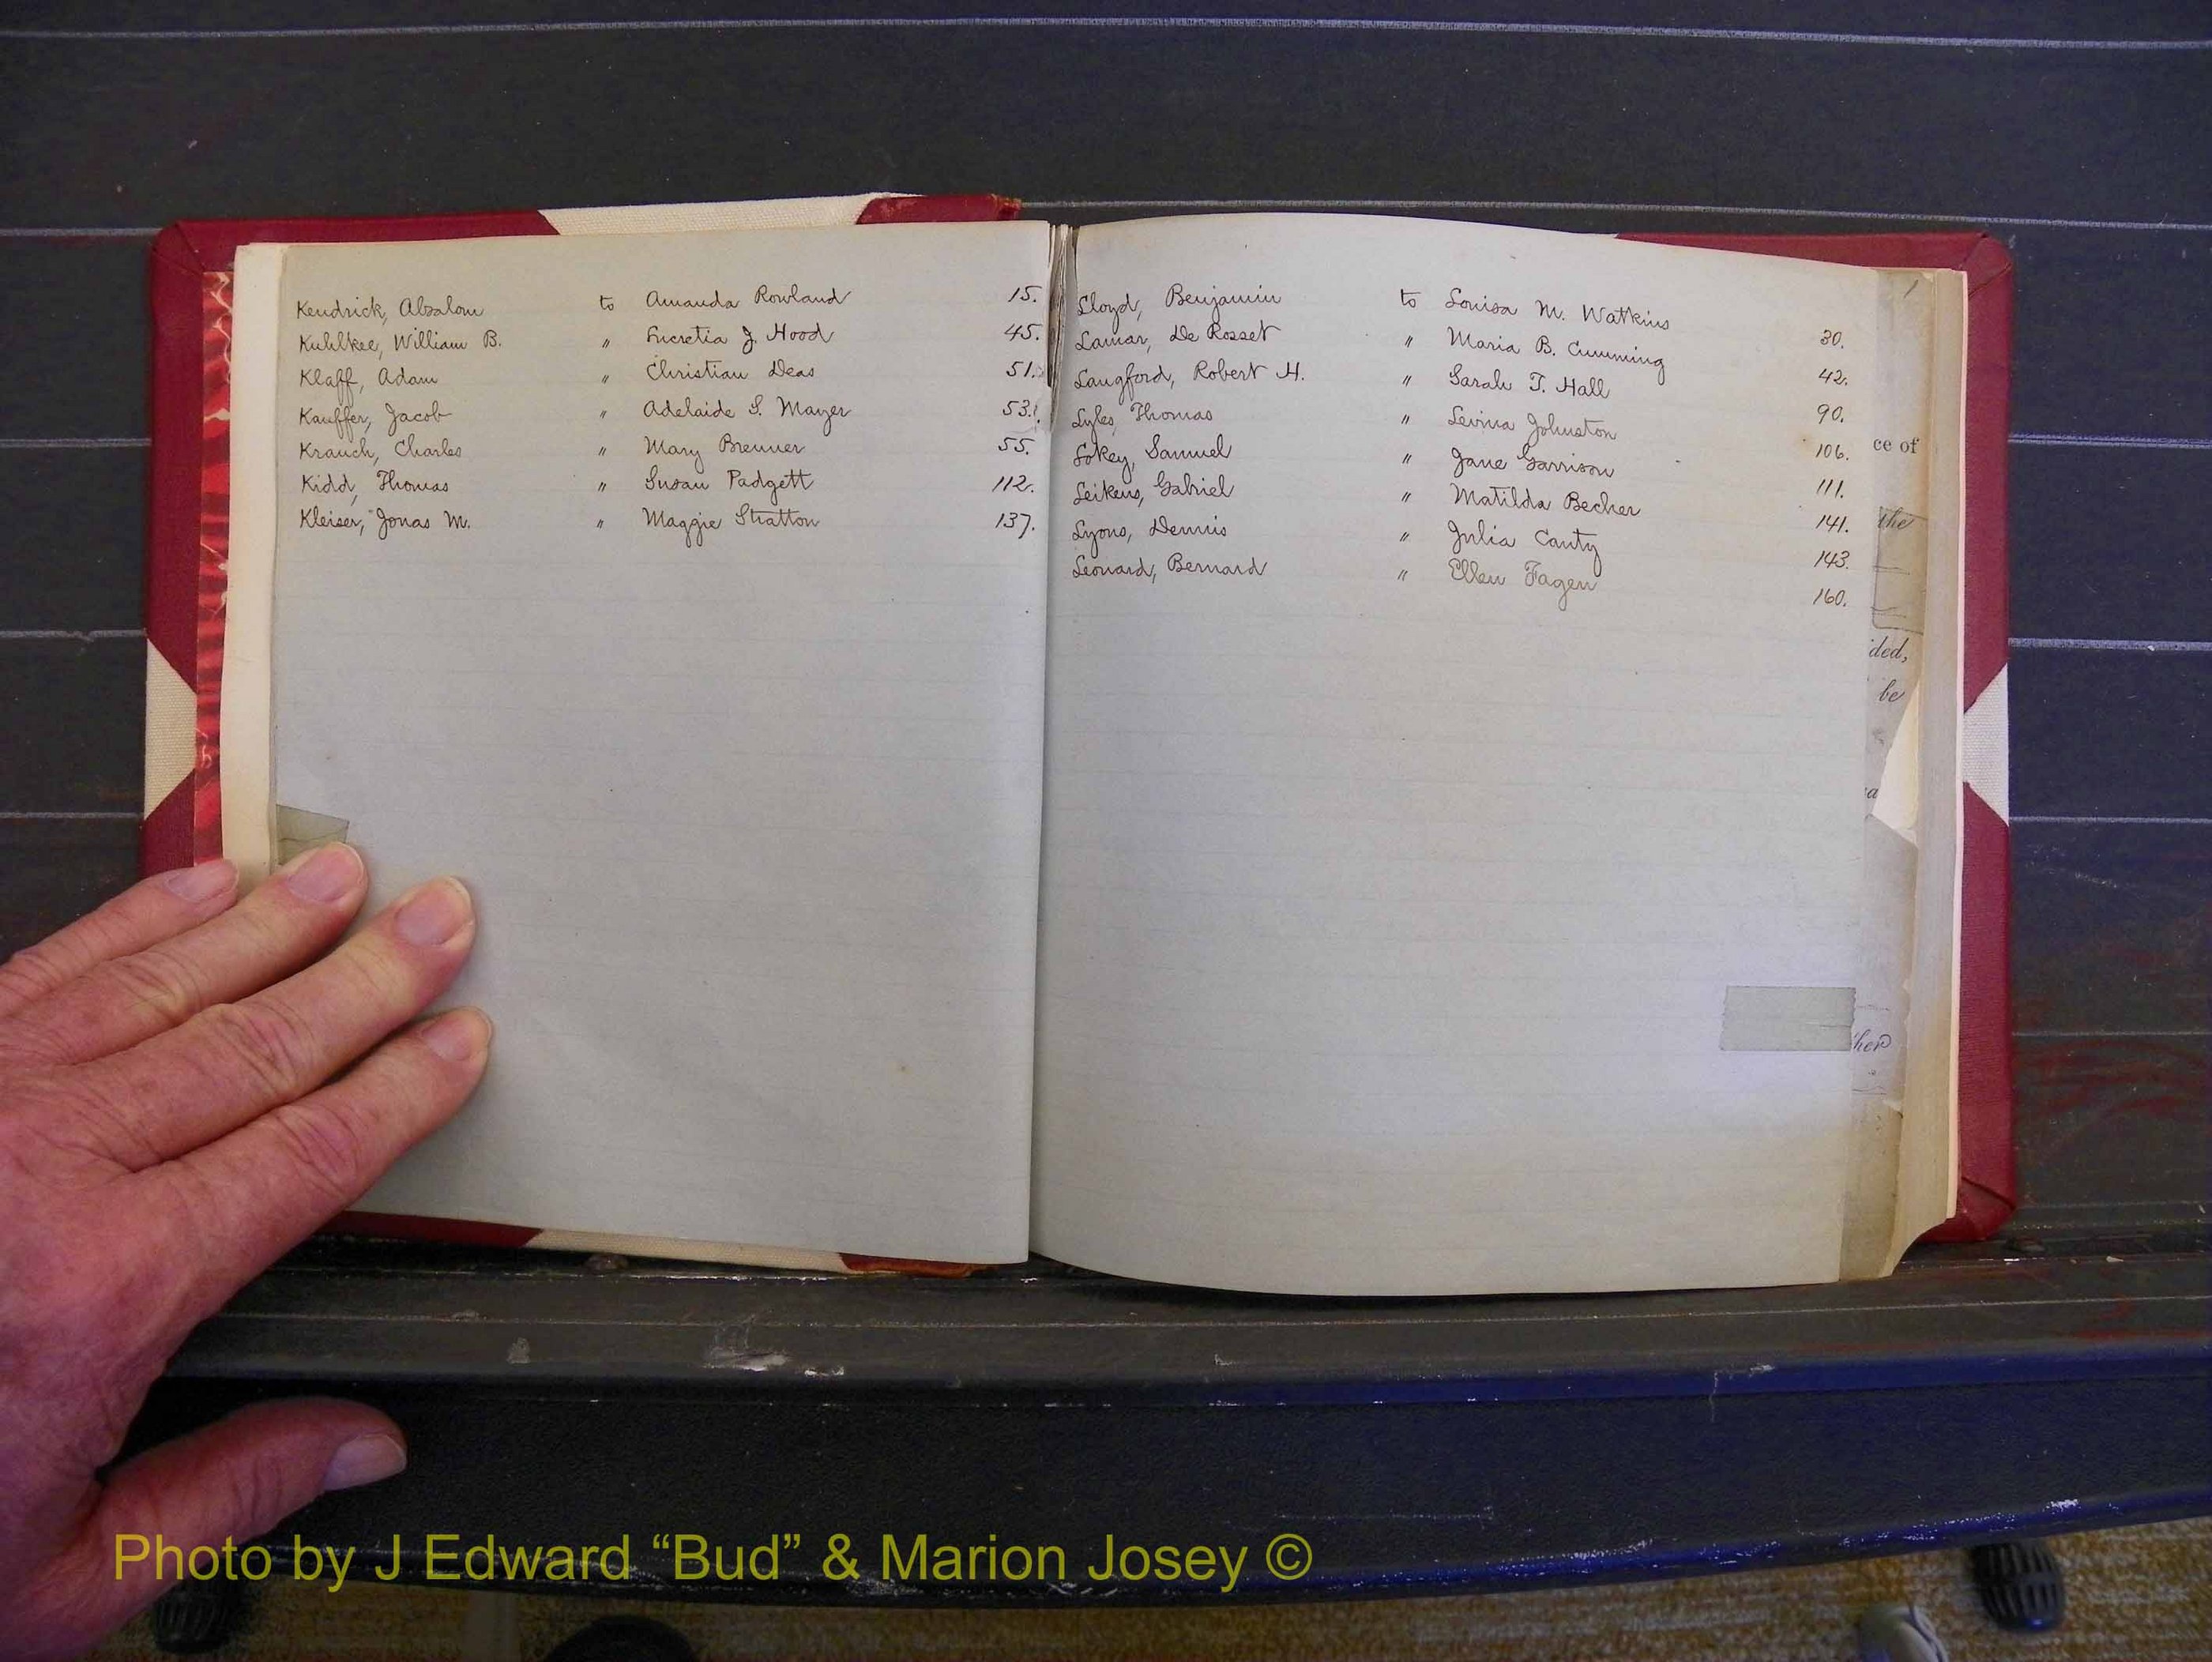 Kendrick, Absalom to Amanda Rowland 15.
Kuhlkee, William B. " Lucretia J. Hood 45.
Klaff, Adam " Christian Deas 51.
Kauffer, Jacob " Adelaide S. Mayer 53.
Krauch, Charles " Mary Brenner 55.
Kidd, Thomas " Susan Padgett 112.
Kleiser, Jonas M. " Maggie Stratton 137.
Lloyd, Benjamin to Louisa M. Watkins 30.
Lamar, De Rosset " Maria B. Cumming 42.
Langford, Robert H. " Sarah T. Hall 90.
Lyles, Thomas " Levina Johnston 106.
Lokey, Samuel " Jane Garrison 111.
Leikens, Gabriel " Matilda Becher 141.
Lyons, Dennis " Julia Canty 143.
Leonard, Bernard " Ellen Fagen 160.
1
ce of
the
ded,
be
her
Photo by J Edward “Bud” & Marion Josey ©